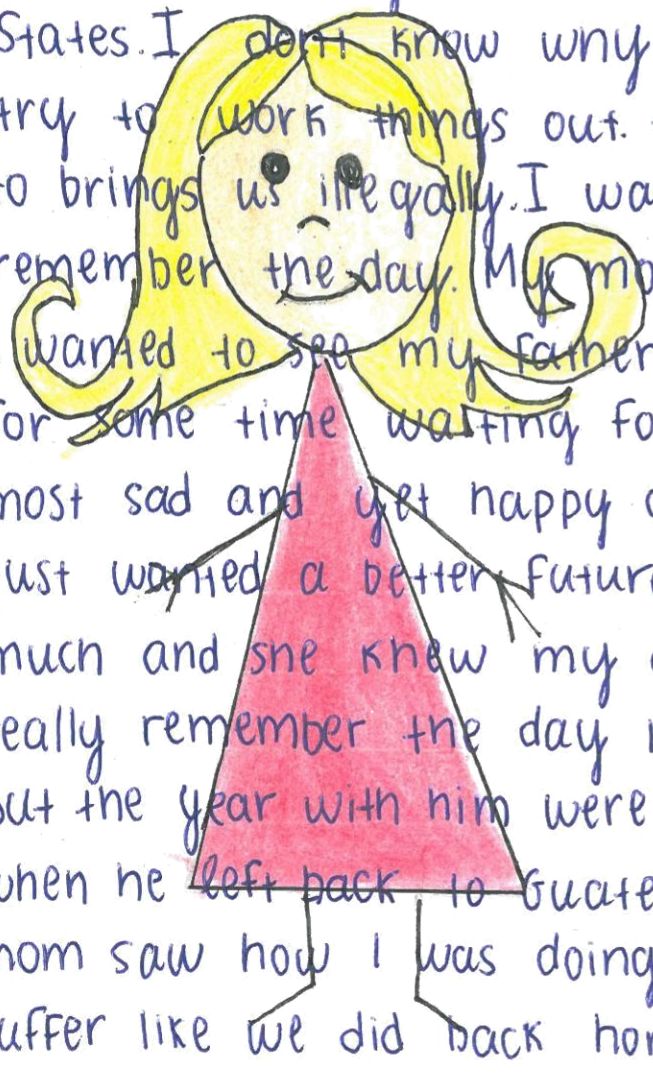 States. I don't know why
try to work things out.
to brings us illegally. I wa
remember the day. My mo
wanted to see my father
for some time waiting fo
most sad and yet happy
just wanted a better futur
much and she knew my
really remember the day
but the year with him were
when he left back to Guate
mom saw how I was doing
uffer like we did back hom